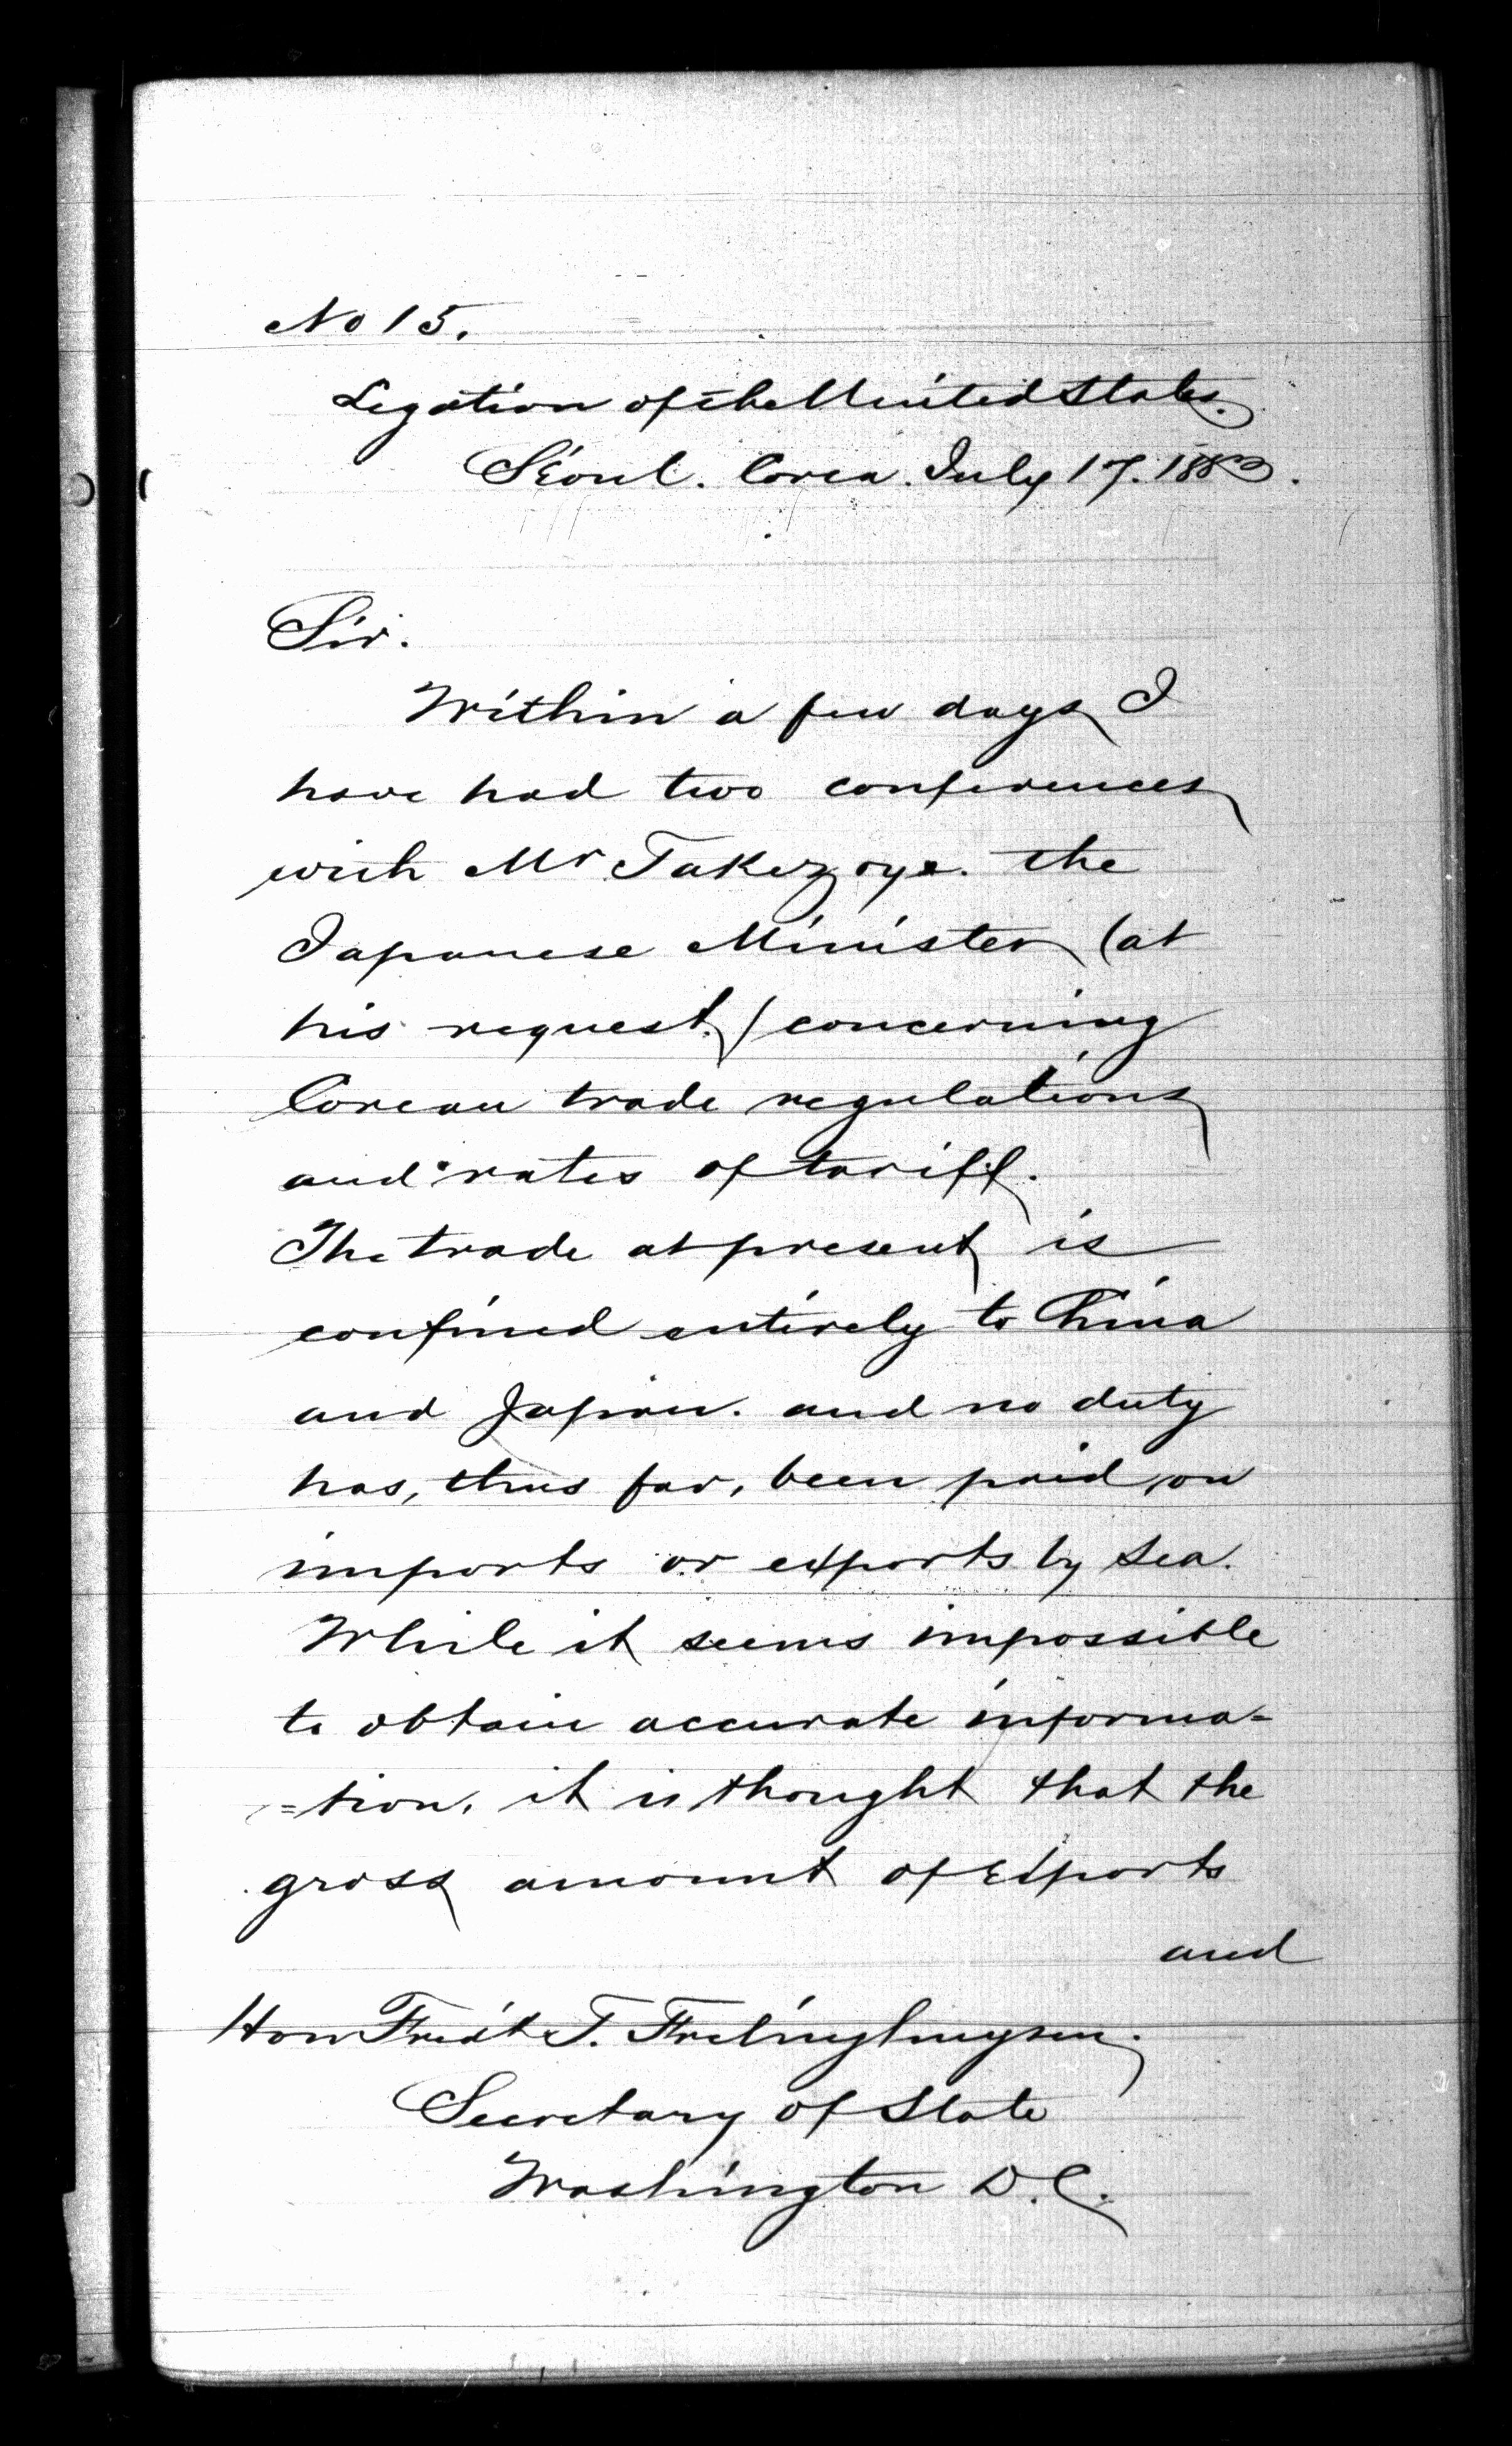 No 15.
Legation of the United States.
Séoul. Corea. July 17. 1883.
Sir.
Within a few days I
have had two conferences
with Mr Takezoye. the
Japanese Minister (at
his request.) concerning
Corean trade regulations
and rates of tariff.
The trade at present is
confined entirely to China
and Japan. and no duty
has, thus far, been paid on
imports or exports by sea.
While it seems impossible
to obtain accurate informa=
=tion, it is thought that the
gross amount of Exports
and
Hon Fred'k T. Frelinghuysen.
Secretary of State
Washington D.C.